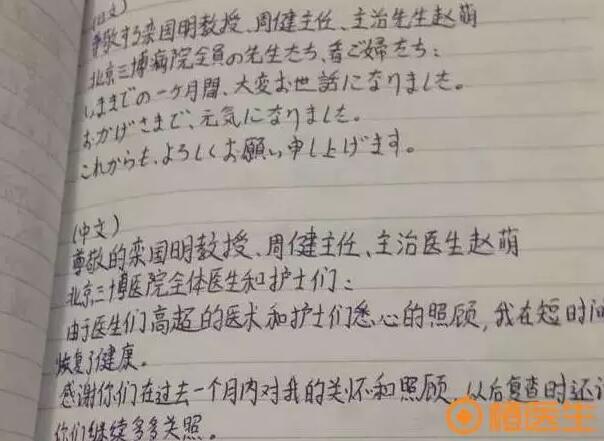 (日文)
尊敬する栾国明教授、周健主任、主治先生赵萌
北京三博病院全員の先生たち、看ご婦たち：
いままでの一ヶ月間、大変お世話になりました。
おかげさまで、元気になりました。
これからも、よろしくお願い申し上げます。
(中文)
尊敬的栾国明教授、周健主任、主治医生赵萌
北京三博医院全体医生和护士们：
由于医生们高超的医术和护士们悉心的照顾，我在短时间
恢复了健康。
感谢你们在过去一个月内对我的关怀和照顾，以后复查时还
你们继续多多关照。
植医生